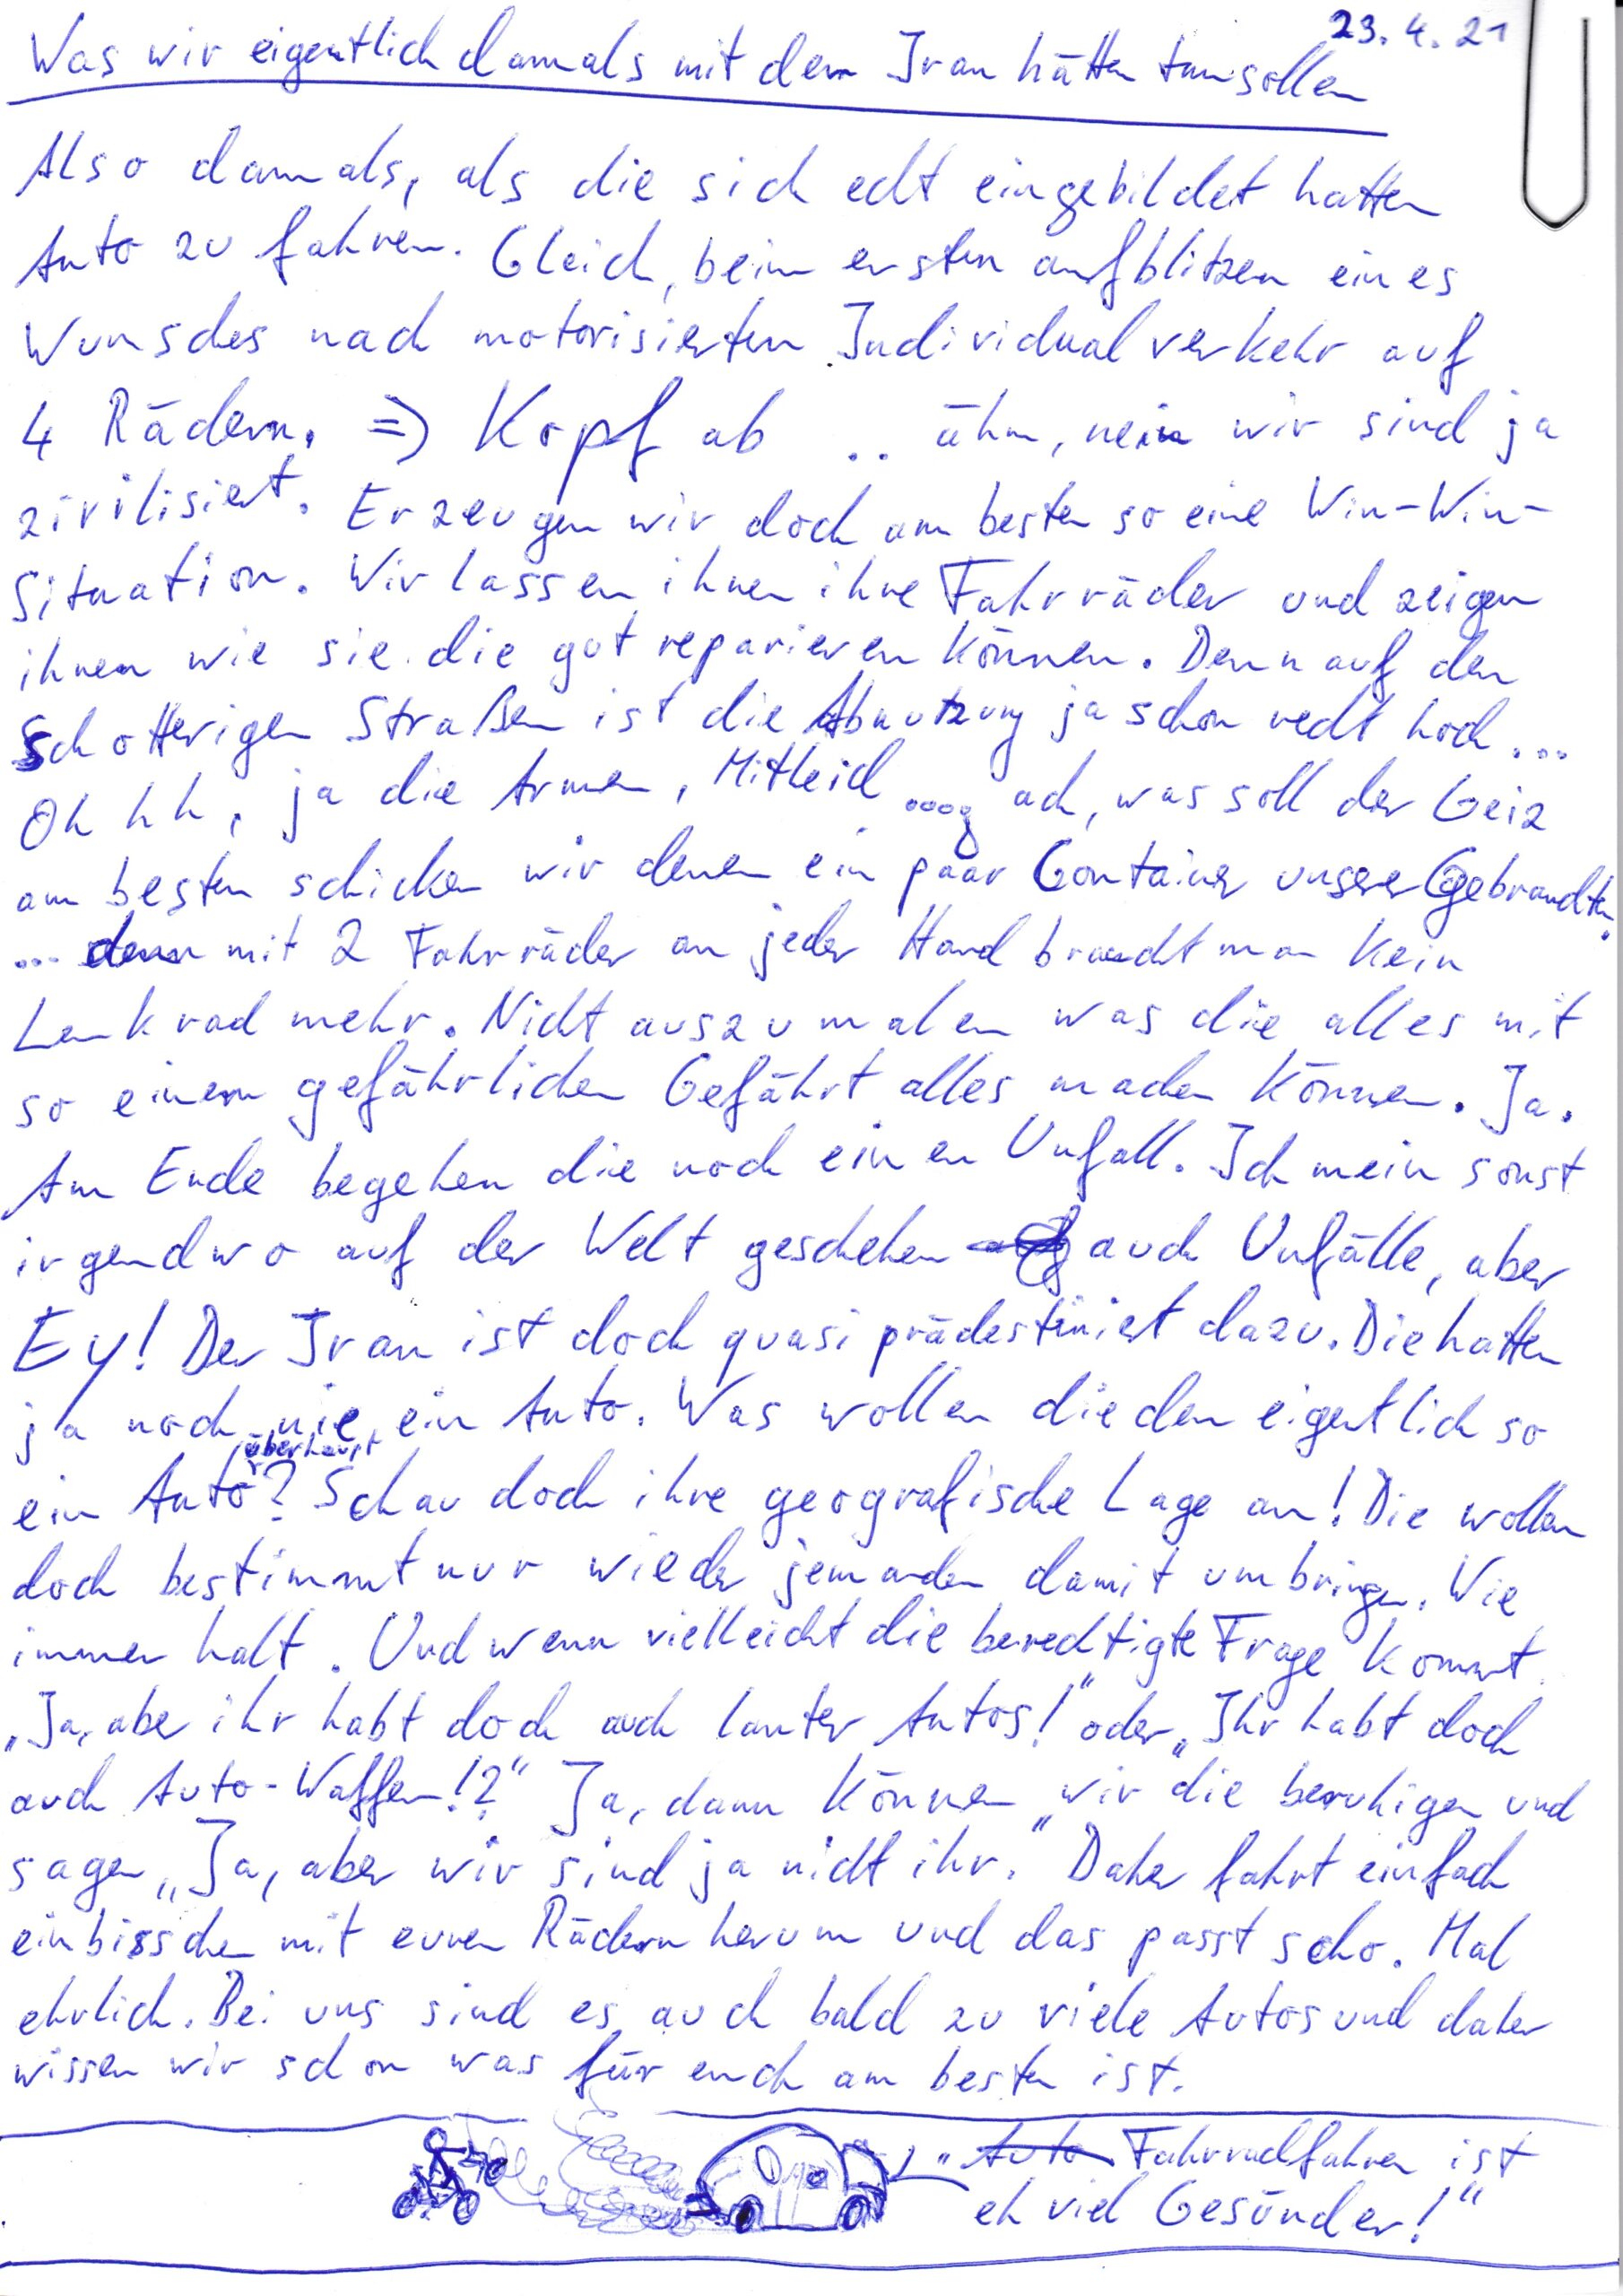 23. 4. 21
Was wir eigentlich damals mit dem Iran hätten tun sollen
Also damals, als die sich echt eingebildet hatten
Auto zu fahren. Gleich, beim ersten aufblitzen eines
Wunsches nach motorisierten Individualverkehr auf
4 Rädern. => Kopf ab .. ähm, nein wir sind ja
zivilisiert. Erzeugen wir doch am besten so eine Win-Win-
Situation. Wir lassen ihnen ihre Fahrräder und zeigen
ihnen wie sie die gut reparieren können. Denn auf den
schotterigen Straßen ist die Abnutzung ja schon recht hoch ...
Ohhh, ja die Armen, Mitleid .... ach, was soll der Geiz
am besten schicken wir denen ein paar Container unserer Gebrauchten.
... denn mit 2 Fahrräder an jeder Hand braucht man kein
Lenkrad mehr. Nicht auszumalen was die alles mit
so einem gefährlichen Gefährt alles machen können. Ja.
Am Ende begehen die noch einen Unfall. Ich mein sonst
irgendwo auf der Welt geschehen auch Unfälle, aber
Ey! Der Iran ist doch quasi prädestiniert dazu. Die hatten
ja noch nie ein Auto. Was wollen die den eigentlich so
ein Auto überhaupt? Schau doch ihre geografische Lage an! Die wollen
doch bestimmt nur wieder jemanden damit umbringen. Wie
immer halt. Und wenn vielleicht die berechtigte Frage kommt
„Ja, aber ihr habt doch auch lauter Autos!" oder „Ihr habt doch
auch Auto-Waffen!?" Ja, dann können wir die beruhigen und
sagen „Ja, aber wir sind ja nicht ihr." Daher fahrt einfach
ein bisschen mit euren Rädern herum und das passt scho. Mal
ehrlich. Bei uns sind es auch bald zu viele Autos und daher
wissen wir schon was für euch am besten ist.
„Auto Fahrradfahren ist
eh viel Gesünder!"